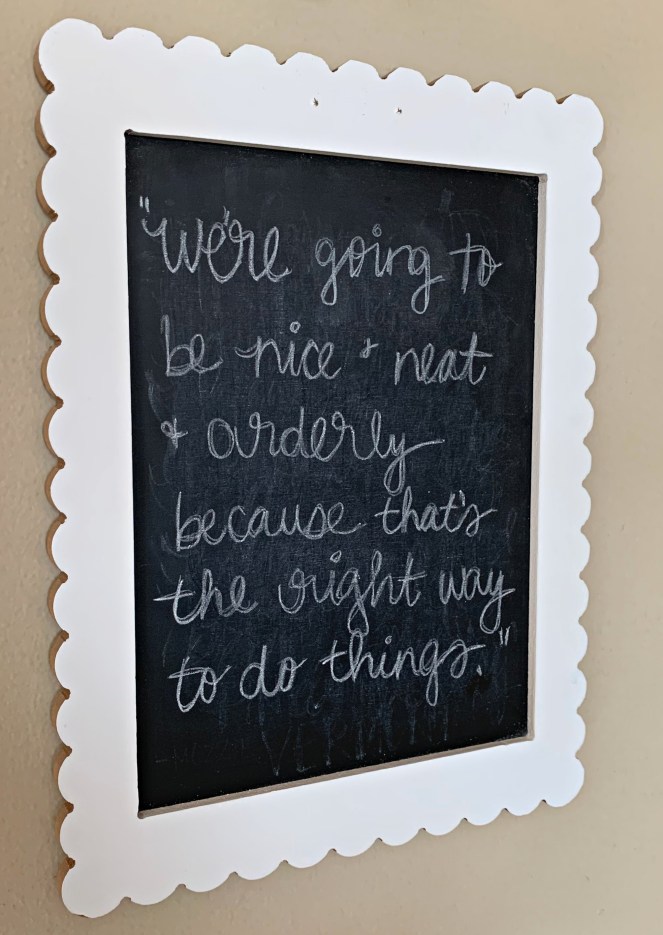 "We're going to
be nice & neat
& orderly
because that's
the right way
to do things."